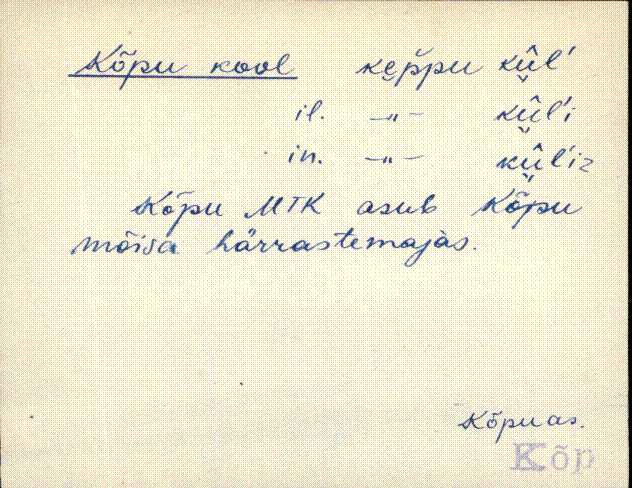 Kõpu kool ke̮p̆pu kü̬̂l'
il. —„— kü̬̂l'i
in. —„— kü̬̂l'iz
Kõpu MTK asub Kõpu
mõisa härrastemajas.
Kõpu as.
Kõp